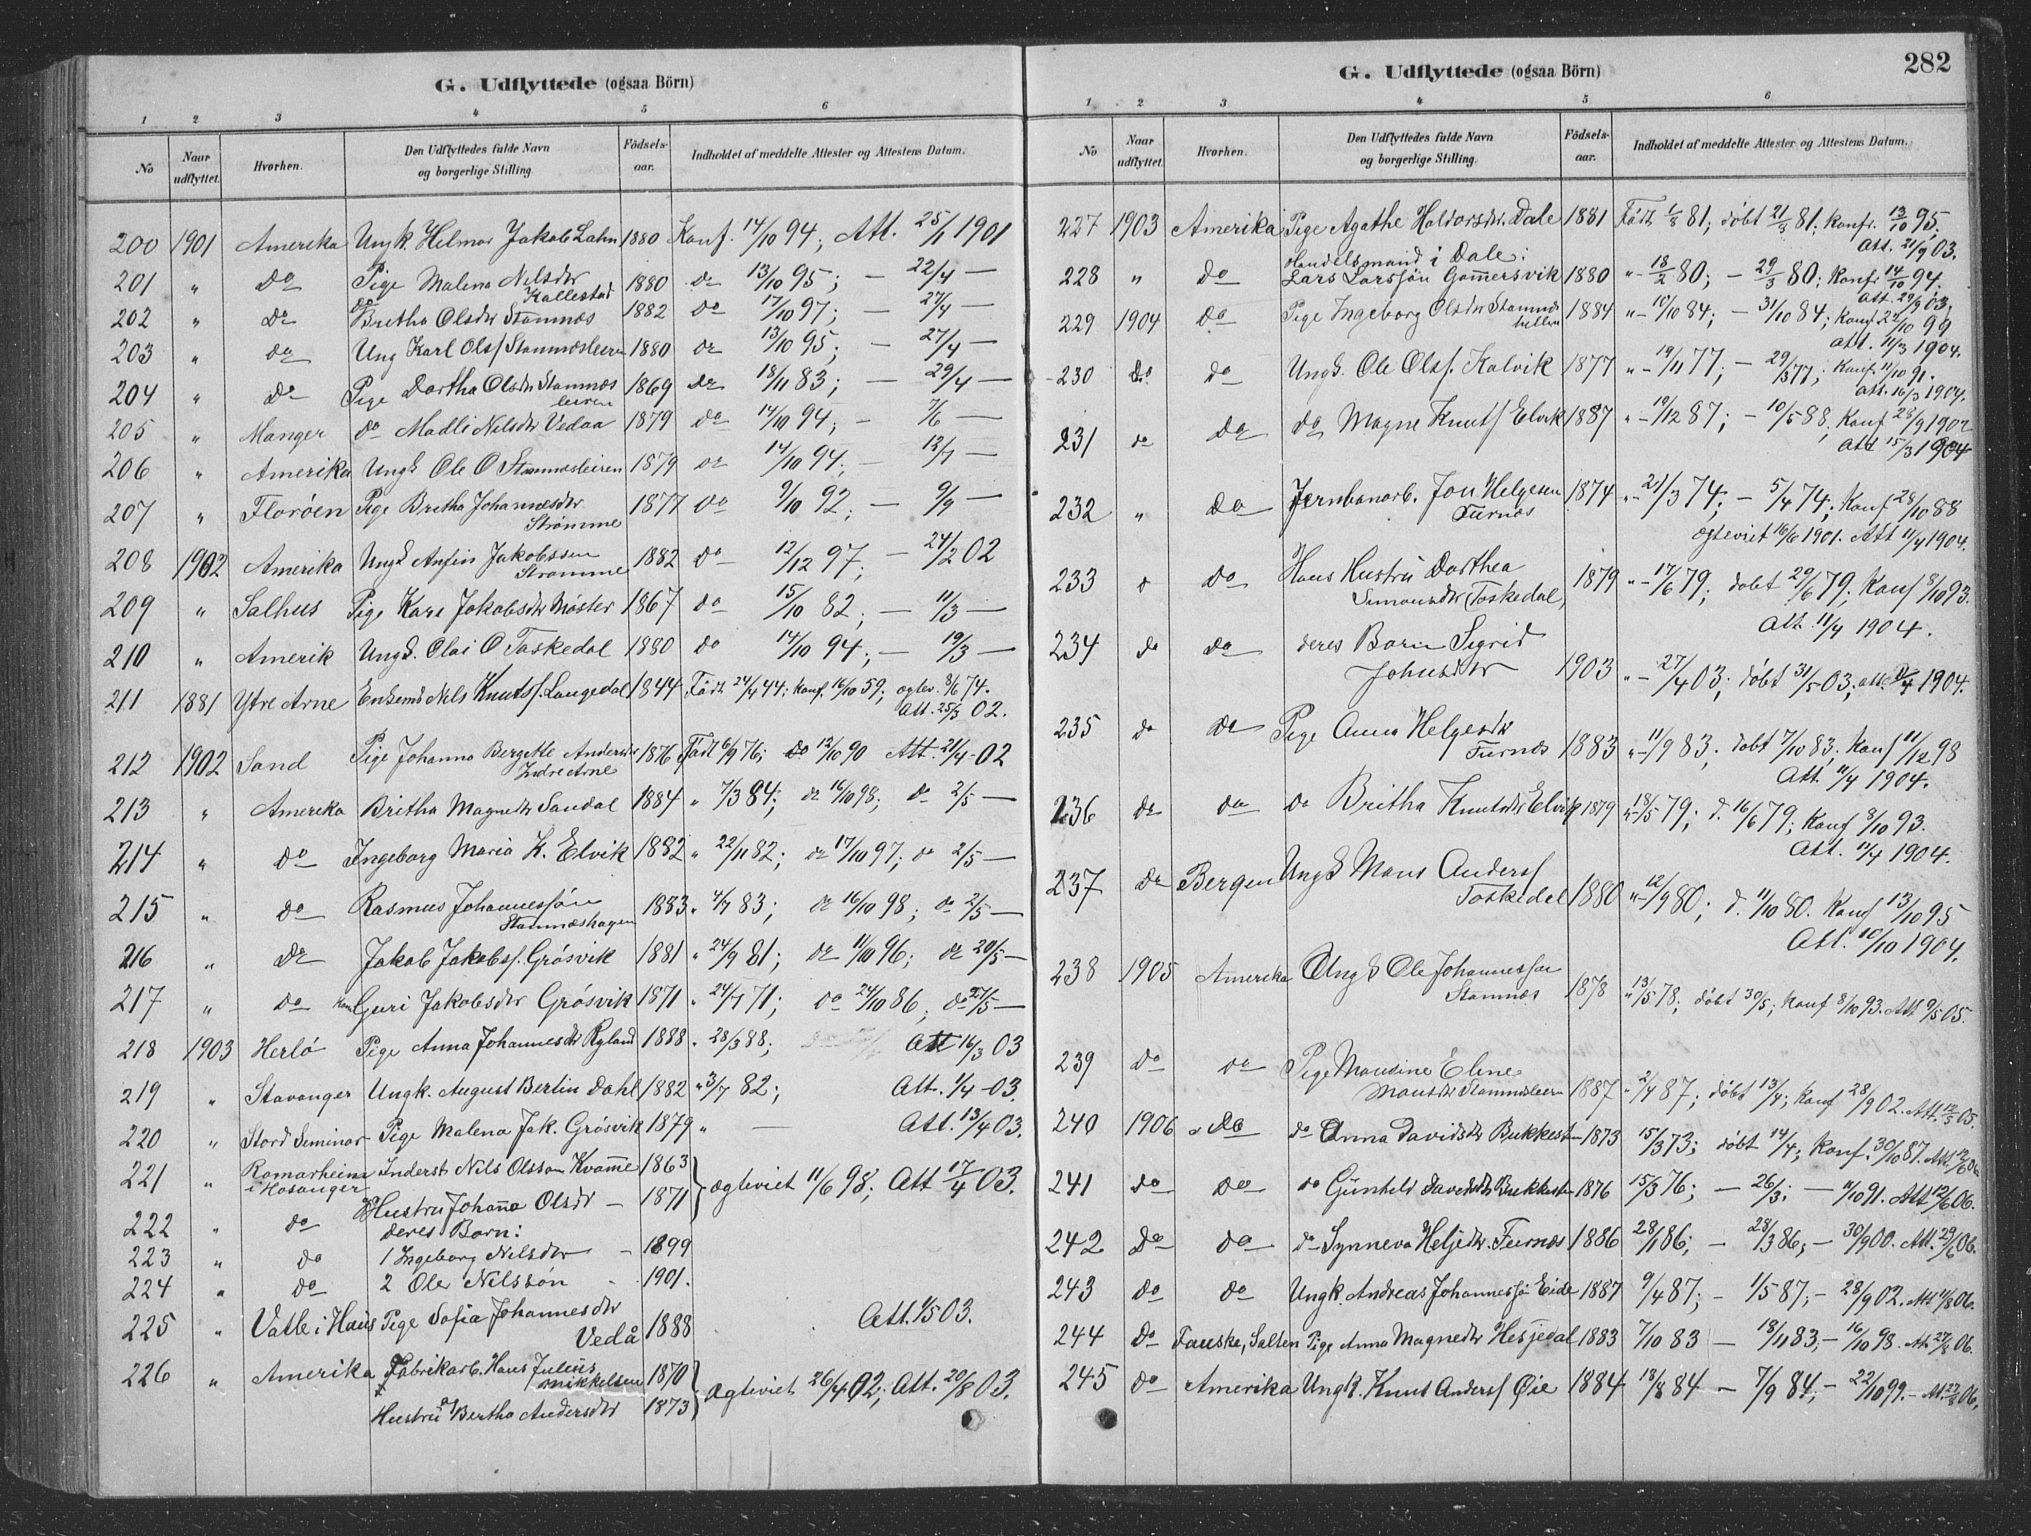 G. Udflyttede (ogsaa Börn)
1 2 3 4 5 6
No Naar udflyttet. Hvorhen. Den Udflyttedes fulde Navn og borgerlige Stilling. Födsels-aar. Indholdet af meddelte Attester og Attestens Datum.
200 1901 Amerika Ungk. Helmer Jakob Lahn 1880 Konf. 14/10 94; Att. 25/1 1901
201 " do Pige Malena Nilsdtr Kallestad 1880 do 13/10 95; — 22/4 —
202 " do do Britha Olsdtr Stamnæs 1882 do 17/10 97; — 27/4 —
203 " do Ung Karl Olsf Stamnæsleiren 1880 do 13/10 95; — 27/4 —
204 " do Pige Dortha Olsdtr Stamnæsleiren 1869 do 18/11 83; — 29/4 —
205 " Manger do Madli Nilsdtr Vedaa 1879 do 14/10 94; — 7/6 —
206 " Amerika Ungk Ole O Stamnæsleiren 1879 do 14/10 94; — 13/7 —
207 " Florøen Pige Britha Johannesdtr Strømme 1877 do 9/10 92; — 9/9 —
208 1902 Amerika Ungk Anfin Jakobssen Strømme 1882 do 12/12 97; — 24/2 02
209 " Salhus Pige Kari Jakobsdtr Møster 1867 do 15/10 82; — 11/3 —
210 " Amerik Ungk. Olai O Toskedal 1880 do 14/10 94; — 19/3 —
211 1881 Ytre Arne Enkemd Nils Knuts. Langedal 1844 Født 24/4 44; Konf. 16/10 59; ægtev. 3/6 74.
Att. 25/3 02.
212 1902 Sand Pige Johanna Bergitte Andersdtr Indre Arne 1876 Født 6/9 76; do 12/10 90 Att. 21/4-02
213 " Amerika Britha Magnedtr Sandal 1884 " 7/3 84; do 16/10 98; do 2/5 —
214 " do Ingeborg Maria K. Elvik 1882 " 22/11 82; do 17/10 97; do 2/5 —
215 " do Rasmus Johannessøn Stamnæshagen 1883 " 4/7 83; do 16/10 98; do 2/5 —
216 " do Jakob Jakobs. Grøsvik 1881 " 24/9 81; do 11/10 96; do 20/5 —
217 " do Kone Guri Jakobsdtr Grøsvik 1871 " 24/7 71; do 24/10 86; do 27/5 —
218 1903 Herlø Pige Anna Johannesdtr Ryland 1888 " 28/3 88; Att 16/3 03
219 " Stavanger Ungk. August Bertin Dahl 1882 " 3/7 82; Att. 1/4-03.
220 " Stord Seminar Pige Malena Jak. Grøsvik 1879 " — Att. 13/4 03.
221 " Romarheim i Hosanger Inderst Nils Olsson Kvamme 1863 ægteviet 11/6 98; Att 17/4 03.
222 " do Hustru Johanna Olsdtr — 1871
deres Born:
223 " do 1 Ingeborg Nilsdtr — 1899
224 " do 2 Ole Nilssøn - 1901.
225 " Vatle i Haus Pige Sofia Johannesdtr Vedå 1888 Att. 1/5 03.
226 " Amerika Fabrikarb. Hans Julius Mikkelsen 1870 ægteviet 26/4 02; Att. 20/8 03.
Hustru Bertha Andersdtr 1873
282
G. Udflyttede (ogsaa Börn)
1 2 3 4 5 6
No Naar udflyttet. Hvorhen. Den Udflyttedes fulde Navn og borgerlige Stilling. Födsels-aar. Indholdet af meddelte Attester og Attestens Datum.
227 1903 Amerika Pige Agathe Holdorsdtr. Dale 1881 Født 1/8 81; døbt 21/8 81; Konf. 13/10 95;
Att. 21/9 03.
228 " do Handelsmand i Dale: Lars Larssøn Gammersvik 1880 " - 18/2 80; — 29/3 80; Konf. 14/10 94.
Att. 29/9 03;
229 1904 do Pige Ingeborg Olsdtr Stamnes 1884 " - 10/10 84; — 31/10 84; Konf 22/10 99
Att. 11/3 1904.
230 do do Ungk. Ole Ols. Kalvik 1877 " - 19/11 77; — 29/3 77; Konf 11/10 91.
Att. 16/3 1904.
231 do do do Magne Knuts Elvik 1887 " - 19/12 87; — 10/5 88, Konf 28/9 1902
Att 15/3 1904
232 " do Jernbanarb. Jon Helgesen Furnes 1874 " - 21/3 74; — 5/4 74; Konf 28/10 88
ægteviet 16/6 1901. Att 11/4 1904.
233 " do Hans Hustru Dorthea Simonsdtr Toskedal 1879 " - 17/6 79; døbt 29/6 79; Konf 8/10 93.
Att. 11/4 1904.
234 do do deres Barn Sigrid Johnsdtr 1903 " - 27/4 03; døbt 31/5 03; att. 11/4 1904.
235 do do Pige Anna Helgesdtr Furnes 1883 " - 11/9 83; døbt 7/10 83; Konf 11/12 98
Att. 11/4 1904.
236 do do do Britha Knutsdtr Elvik 1879 " 18/5 79; d. 16/6 79; Konf 8/10 93.
Att. 11/4 1904.
237 do Bergen Ungk Mons Anders Toskedal 1880 " - 12/9 80; d. 11/10 80. Konf 13/10 95
Att. 10/10 1904.
238 1905 Amerika Ungk Ole Johannessen Stamnæs 1878 " 13/5 78; døbt 30/5; Konf 8/10 93. Att 9/5 05.
239 do do Pige Monsine Eline Monsdtr Stamnesleiren 1887 " 2/4 87; døbt 13/4; Konf 28/9 02. Att. 12/5 05.
240 1906 do do Anna Davidsdtr Bukkest 1873 15/3 73; døbt 14/4; Konf. 30/10 87. Att 12/6 06
241 do do do Gunhild Davidsdtr Bukkesten 1876 15/3 76; — 26/3; — 11/10 91. Att 12/6 06.
242 do do do Synneva Heljedtr Furnes 1886 28/1 86; — 28/3 86; — 30/9 00. Att. 29/6 06.
243 do do Ungk. Andreas Johannessøn Eide 1887 9/4 87; — 1/5 87; — 28/9 02. Att 11/8 06.
244 do Fauske, Salten Pige Anna Magnedtr Hesjedal 1883 7/10 83 — 18/11 83; — 16/10 98. Att 27/8 06.
245 do Amerika Ungk. Knut Anders Øie 1884 18/8 84 — 7/9 84; — 22/10 99. — Att. 27/8 06,